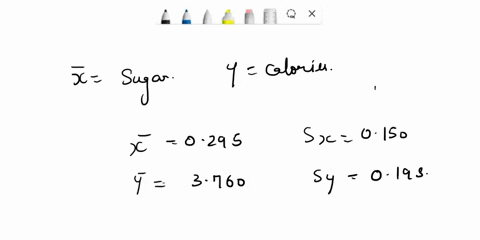 x̄ = Sugar. y = Calories.
x̄ = 0.295 Sx = 0.150
ȳ = 3.760 Sy = 0.193.